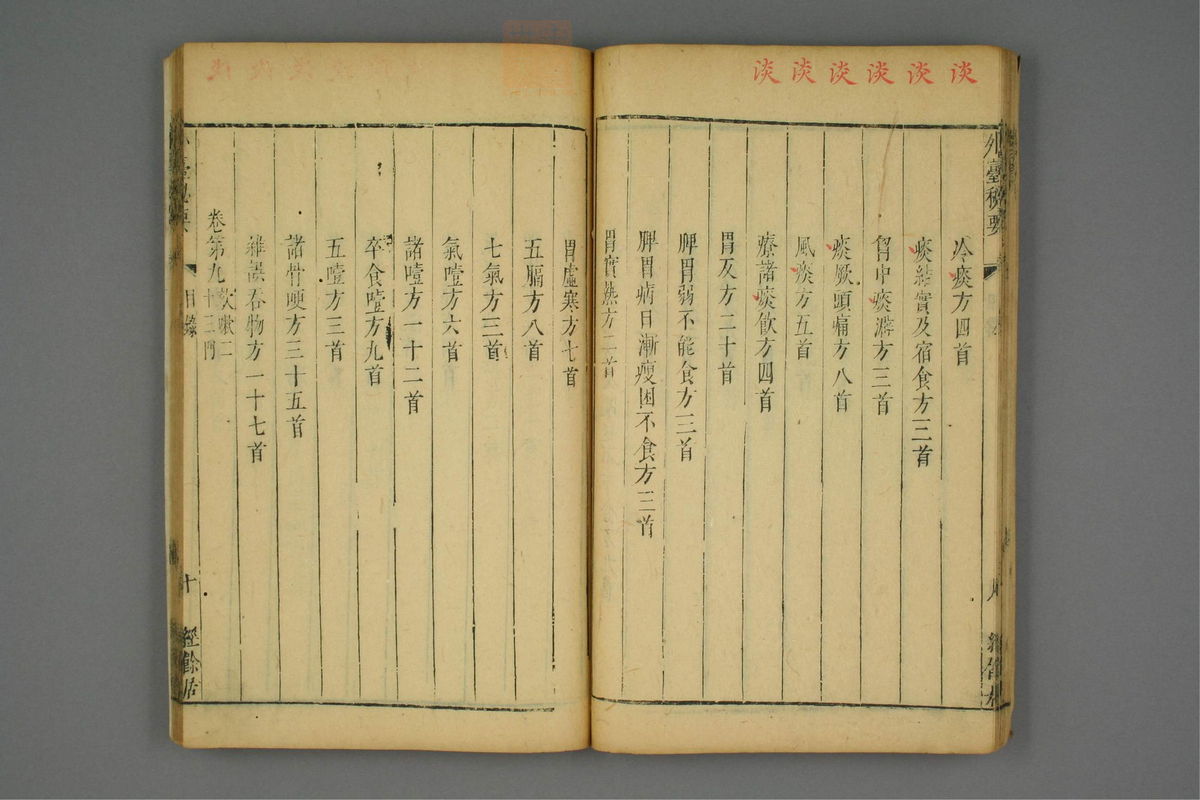 淡 淡 淡 淡 淡 淡
外臺秘要
冷痰方四首
痰結實及宿食方三首
胷中痰澼方三首
痰厥頭痛方八首
風痰方五首
療諸痰飲方四首
胃反方二十首
脾胃弱不能食方三首
脾胃病日漸瘦困不食方三首
胃實熱方二首
胃虛寒方七首
五膈方八首
七氣方三首
氣噎方六首
諸噎方一十二首
卒食噎方九首
五噎方三首
諸骨哽方三十五首
雜誤吞物方一十七首
卷第九欬嗽二十三門
臺秘要
目錄
十
經餘居